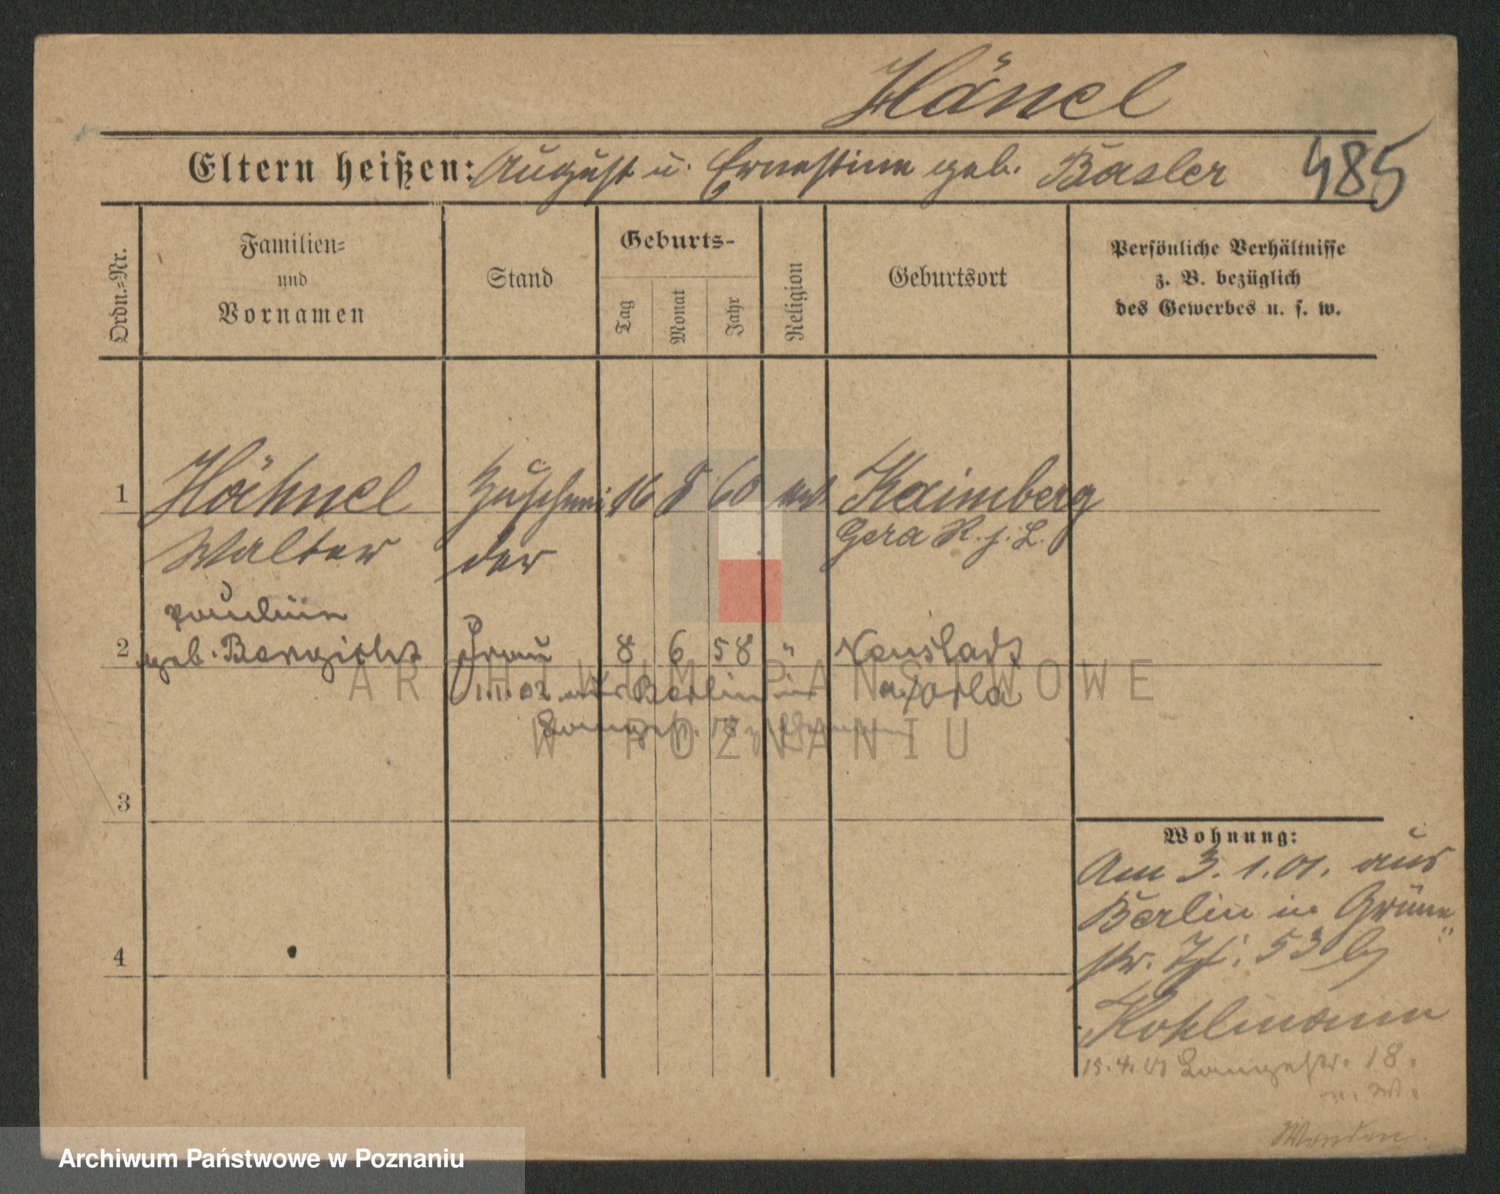 Hänel
Eltern heißen: August u. Ernestine geb. Basler 485
Ordn.-Nr.
Familien-
und
Vornamen
Stand
Geburts-
Tag
Monat
Jahr
Religion
Geburtsort
Persönliche Verhältnisse
z. B. bezüglich
des Gewerbes u. s. w.
1 Hähnel Zuschnei 16 8 60 Kaimberg
Walter der Gera R. j. L.
Pauline
2 geb. Frau 8 6 58 " Neustadt
1.11.02 aus Berlin in a/Orla
Langestr. 18
3
4
Wohnung:
Am 3.1.01. aus
Berlin in Grüne
str. 53 b/
Kohlmann
15.4.01 Langestr. 18.
ARCHIWUM PAŃSTWOWE
W POZNANIU
Archiwum Państwowe w Poznaniu